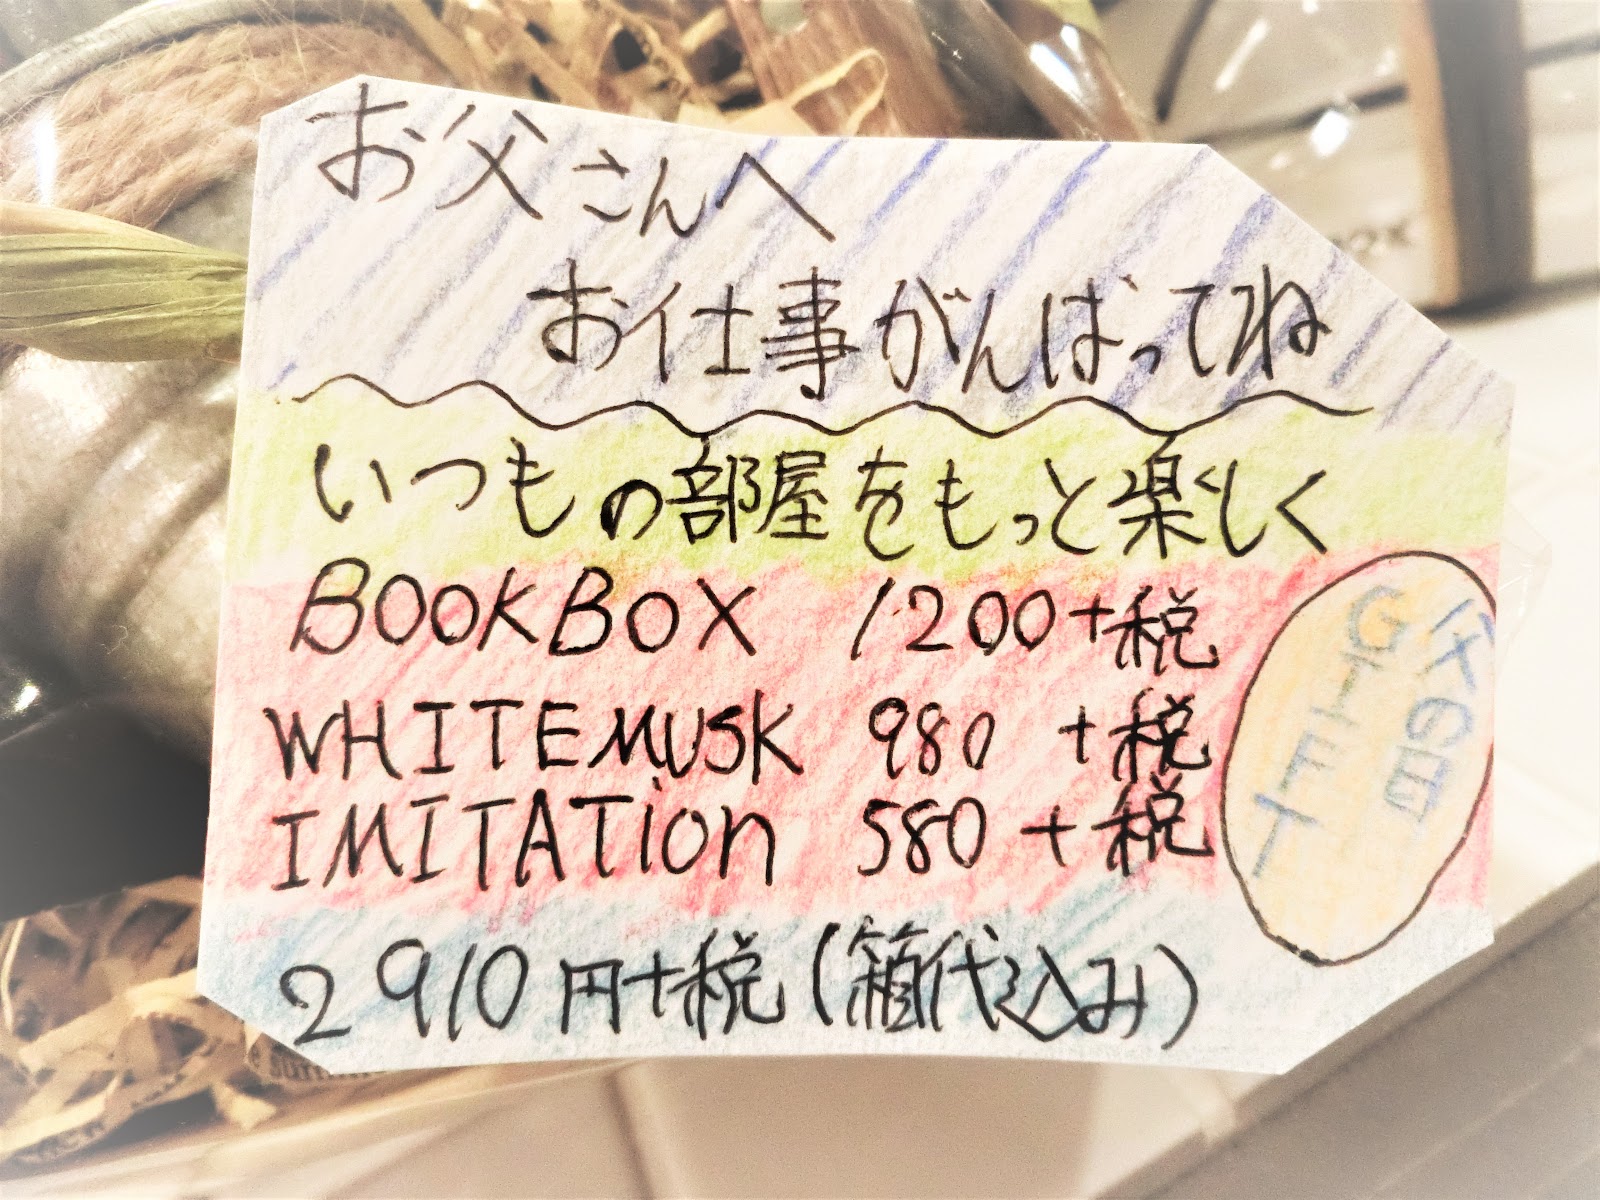 お父さんへ
お仕事がんばってね
いつもの部屋をもっと楽しく
BOOKBOX 1200+税
WHITEMUSK 980 +税
IMITATion 580 +税
2910円+税(箱代込み)
父の日
GIFT